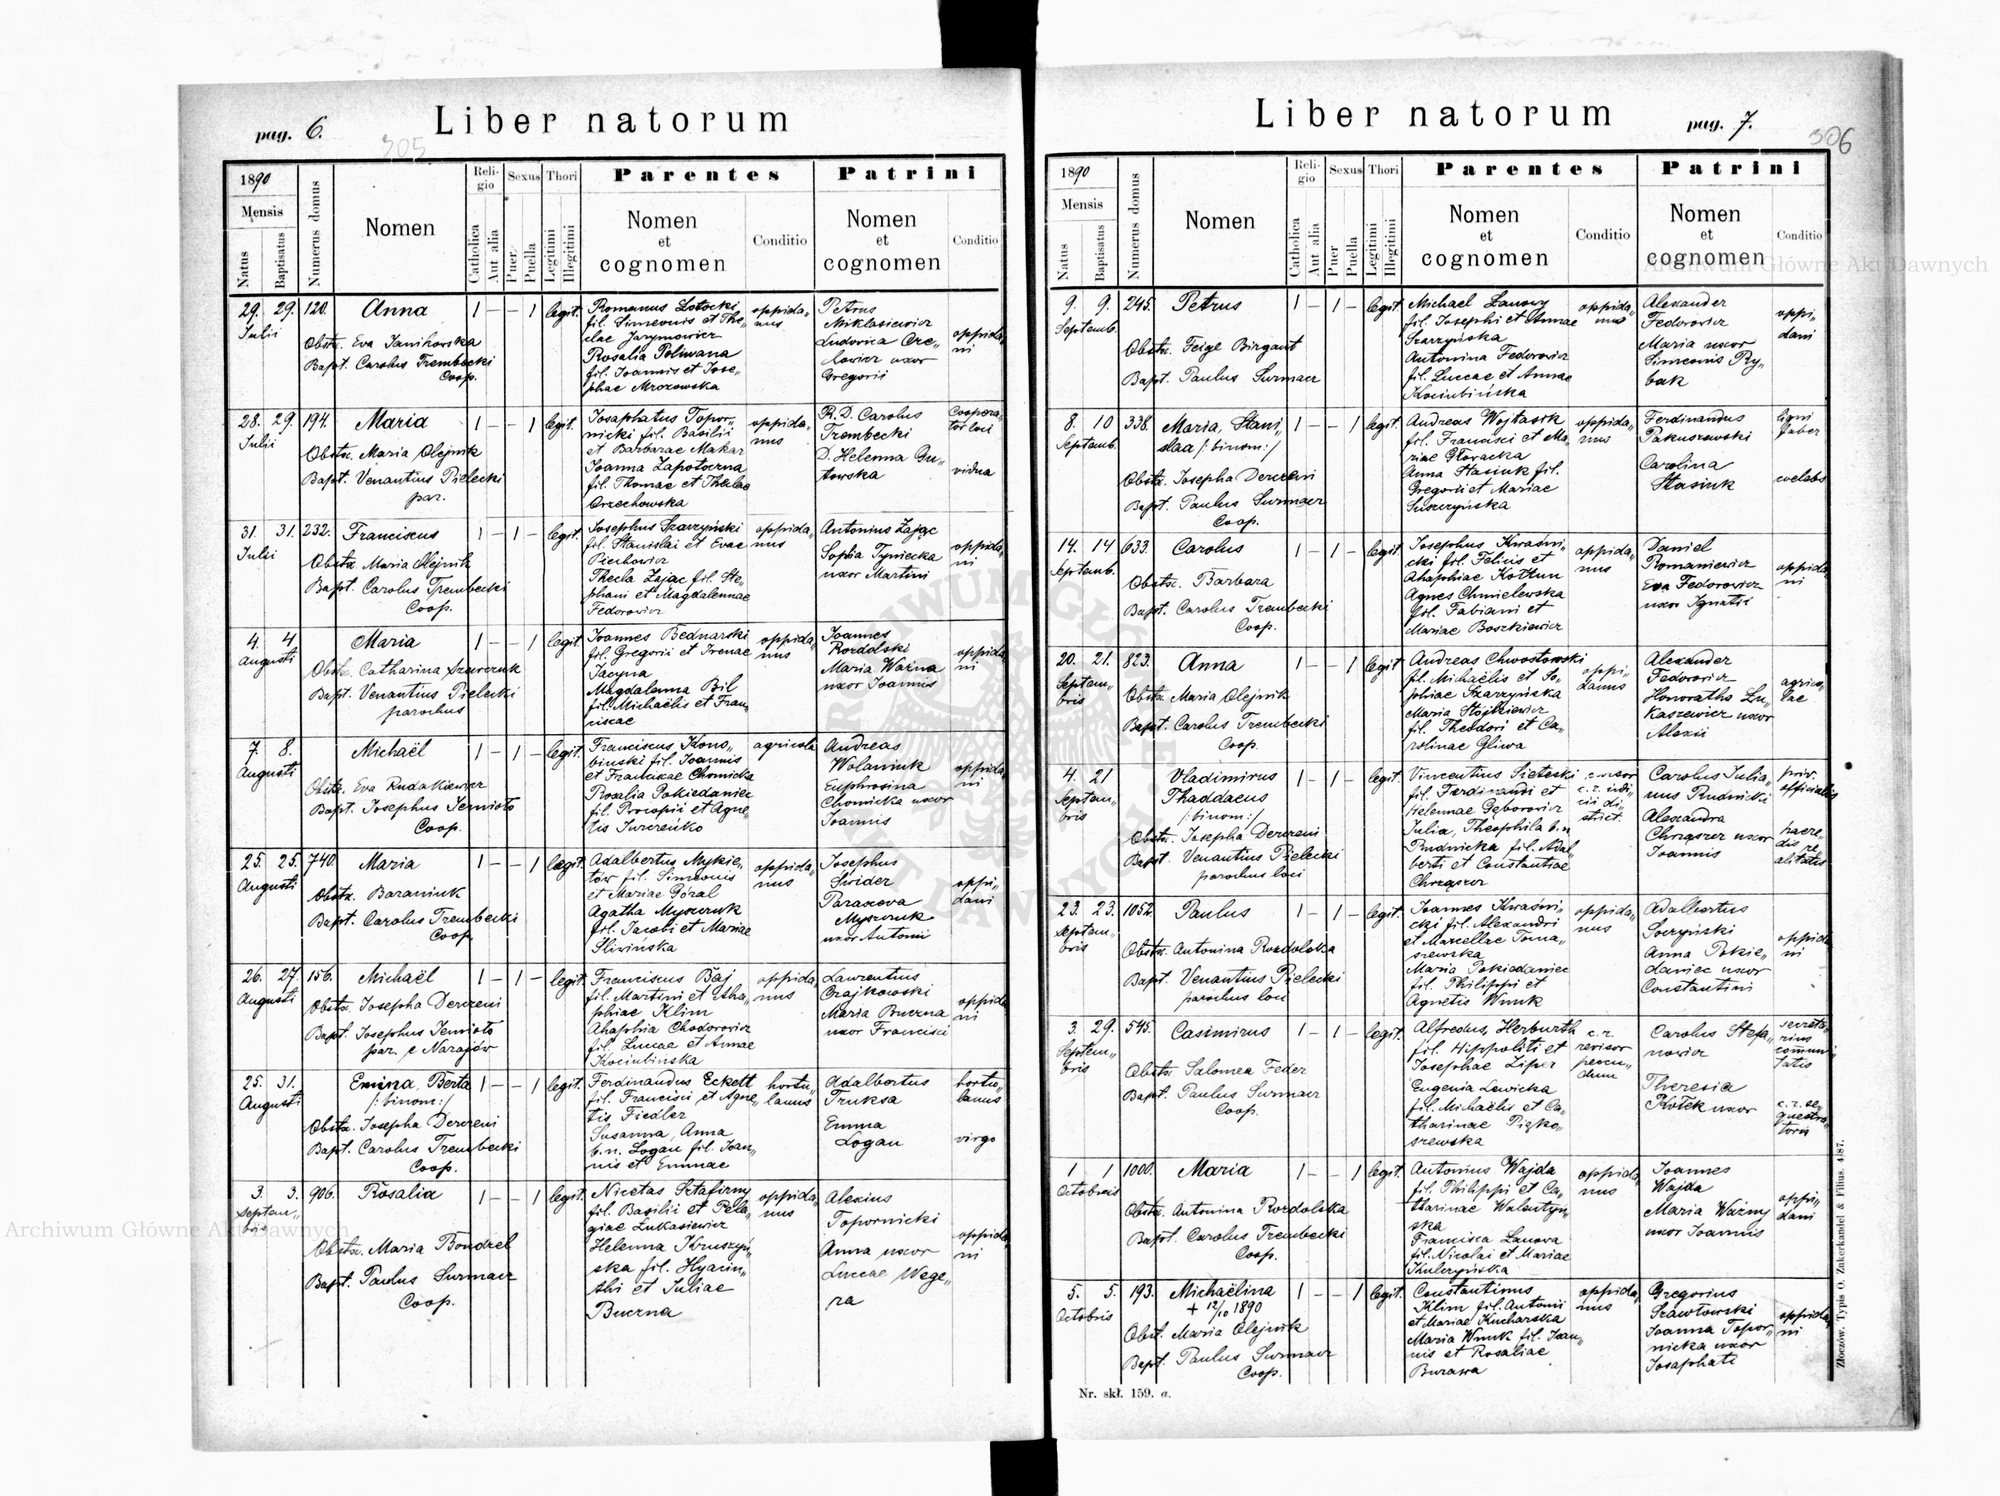 Liber natorum
pag. 6.
305
1890
Mensis
Natus
Baptisatus
Numerus domus
Nomen
Religio
Catholica
Aut alia
Sexus
Puer
Puella
Thori
Legitimi
Illegitimi
Parentes
Nomen
et
cognomen
Conditio
Patrini
Nomen
et
cognomen
Conditio
29. 29. 120. Anna 1 – – 1 legit.
Julii
Obstx. Eva Janikowska
Bapt. Carolus Trembecki
Coop.
Romanus Łotocki
fil. Simeonis et The„
clae Jarymowicz
Rosalia Poliwana
fil. Joannis et Jose„
phae Mrozowska
oppida„
nus
Petrus
Miklasiewicz
Ludovica Cze„
uxor
Gregorii
oppida„
ni
28. 29. 194. Maria 1 – – 1 legit.
Julii
Obstx. Maria Olejnik
Bapt. Venantius Pielecki
par.
Josaphatus Topor„
nicki fil. Basilii
et Barbarae Makar
Joanna Zapotoczna
fil. Thomae et Theclae
Orzechowska
oppida„
nus
R. D. Carolus
Trembecki
D. Helenna Gu„
towska
Coopera„
tor loci
vidua
31. 31. 232. Franciscus 1 – 1 – legit.
Julii
Obstx. Maria Olejnik
Bapt. Carolus Trembecki
Coop.
Josephus Szarzyński
fil. Stanislai et Evae
Piechowicz
Thecla Zając fil. Ste„
phani et Magdalennae
Fedorowicz
oppida„
nus
Antonius Zając
Sophia Tyniecka
uxor Martini
oppida„
ni
4. 4 Maria 1 – – 1 legit.
Augusti
Obstx. Catharina Szewczuk
Bapt. Venantius Pielecki
parochus
Joannes Bednarski
fil. Gregorii et Irenae
Jacyna
Magdalenna Bil
fil. Michaëlis et Fran„
ciscae
oppida„
nus
Joannes
Rozdolski
Maria Ważna
uxor Joannis
oppida„
ni
7. 8. Michaël 1 – 1 – legit.
Augusti
Obstx. Eva Rudakiewicz
Bapt. Josephus Jernioto
Coop.
Franciscus Kono„
biński fil. Joannis
et Franciscae Chomicka
Rosalia Pokiedaniec
fil. Procopii et Agne„
tis Jurczeńko
agricola
Andreas
Wolaniuk
Euphrosina
Chomicka uxor
Joannis
oppida„
ni
25. 25. 740. Maria 1 – – 1 legit.
Augusti
Obstx. Baraniuk
Bapt. Carolus Trembecki
Coop.
Adalbertus Mykie„
tów fil. Simeonis
et Mariae Góral
Agatha Myszczuk
fil. Jacobi et Mariae
Śliwińska
oppida„
nus
Josephus
Świder
Parascova
Myszczuk
uxor Antonii
oppi„
dani
26. 27 156. Michaël 1 – 1 – legit.
Augusti
Obstx. Josepha Dereceni
Bapt. Josephus Jernioto
par. e Narajów
Franciscus Baj
fil. Martini et Aha„
phiae Klim
Ahaphia Chodorowicz
fil. Lucae et Annae
Kociubińska
oppida„
nus
Laurentius
Czajkowski
Maria Buczna
uxor Francisci
oppida„
ni
25. 31. Emina, Berta 1 – – 1 legit.
Augusti
/: binom :/
Obstx. Josepha Dereceni
Bapt. Carolus Trembecki
Coop.
Ferdinandus Eckett
fil. Francisci et Agne„
tis Fiedler
Susanna, Anna
b. n. Logan fil. Joan„
nis et Emmae
hortu„
lanus
Adalbertus
Truksa
Emma
Logan
hortu„
lanus
virgo
3. 3. 906. Rosalia 1 – – 1 legit.
Septem„
bris
Obstx. Maria Boudzel
Bapt. Paulus Surmacz
Coop.
Nicetas Sztafirny
fil. Basilii et Pela„
giae Łukasiewicz
Helenna Kruszyń„
ska fil. Hyacin„
thi et Juliae
Buczna
oppida„
nus
Alexius
Topornicki
Anna uxor
Luccae Wege„
ra
oppida„
ni
Liber natorum
pag. 7.
306
1890
Mensis
Natus
Baptisatus
Numerus domus
Nomen
Religio
Catholica
Aut alia
Sexus
Puer
Puella
Thori
Legitimi
Illegitimi
Parentes
Nomen
et
cognomen
Conditio
Patrini
Nomen
et
cognomen
Conditio
9. 9. 245. Petrus 1 – 1 – legit.
Septemb.
Obstx. Feige Birgant
Bapt. Paulus Surmacz
Michael Łanowy
fil. Josephi et Annae
Szarzyńska
Antonina Fedorowicz
fil. Luccae et Annae
Kociubińska
oppida„
nus
Alexander
Fedorowicz
Maria uxor
Simeonis Ry„
bak
oppi„
dani
8. 10 338. Maria, Stani„ 1 – – 1 legit.
Septemb.
slaa /: binom :/
Obstx. Josepha Dereceni
Bapt. Paulus Surmacz
Coop.
Andreas Wojtasik
fil. Francisci et Ma„
riae Głowacka
Anna Stasiuk fil.
Gregorii et Mariae
Suszczyńska
oppida„
nus
Ferdinandus
Pakuszewski
Carolina
Stasiuk
ligni
faber
coelebs
14. 14 633. Carolus 1 – 1 – legit.
Septemb.
Obstx. Barbara
Bapt. Carolus Trembecki
Coop.
Josephus Kwaśni„
cki fil. Felicis et
Ahaphiae Kottun
Agnes Chmielewska
fil. Fabiani et
Mariae Boszkiewicz
oppida„
nus
Daniel
Romaniewicz
Eva Fedorowicz
uxor Ignatii
oppida„
ni
20. 21. 823. Anna 1 – – 1 legit.
Septem„
bris
Obstx. Maria Olejnik
Bapt. Carolus Trembecki
Coop.
Andreas Chwostowski
fil. Michaëlis et So„
phiae Szarzyńska
Maria Stojkiewicz
fil. Theodori et Ca„
rolinae Gliwa
oppi„
danus
Alexander
Fedorowicz
Honoratha Łu„
kaszewicz uxor
Alexii
agrico„
lae
4. 21 Vladimirus 1 – 1 – legit.
Septem„
bris
Thaddaeus
/: binom :/
Obstx. Josepha Dereceni
Bapt. Venantius Pielecki
parochus loci
Vincentius Sieteski
fil. Ferdinandi et
Helennae Gęborowicz
Julia, Theophila b. n.
Rudnicka fil. Adal„
berti et Constantiae
Chrząszcz
c. r. judi„
cii di„
strict.
Carolus Julia„
nus Rudnicki
Alexandra
Chrząszcz uxor
Joannis
priv.
officialis
haere„
dis re„
alitatis
23. 23. 1052. Paulus 1 – 1 – legit.
Septem„
bris
Obstx. Antonina Rozdolska
Bapt. Venantius Pielecki
parochus loci
Joannes Kwaśni„
cki fil. Alexandri
et Marcellae Toma„
szewska
Maria Pokiedaniec
fil. Philippi et
Agnetis Wnuk
oppida„
nus
Adalbertus
Soczyński
Anna Pokie„
daniec uxor
Constantini
oppida„
ni
3. 29. 545. Casimirus 1 – 1 – legit.
Septem„
bris
Obstx. Salomea Feder
Bapt. Paulus Surmacz
Coop.
Alfredus Herburth
fil. Hippoliti et
Josephae Ziper
Eugenia Lewicka
fil. Michaëlis et Ca„
tharinae Piątko„
szewska
c. r.
revisor
pecu„
dum
Carolus Stefa„
nowicz
Theresia
Kotek uxor
secreta„
rius
commu„
tatis
c. r. se„
questra„
toris
1 1 1000. Maria 1 – – 1 legit.
Octobris
Obstx. Antonina Rozdolska
Bapt. Carolus Trembecki
Coop.
Antonius Wajda
fil. Philippi et Ca„
tharinae Walentyn„
ska
Francisca Łanova
fil. Nicolai et Mariae
Kulczyńska
oppida„
nus
Joannes
Wajda
Maria Ważny
uxor Joannis
oppi„
dani
5. 5. 193. Michaëlina 1 – – 1 legit.
Octobris
+ 12/10 1890
Obst. Maria Olejnik
Bapt. Paulus Surmacz
Coop.
Constantinus
Klim fil. Antonii
et Mariae Kucharska
Maria Wnuk fil. Joan„
nis et Rosaliae
Burawa
oppida„
nus
Gregorius
Szawłowski
Joanna Topor„
nicka uxor
Josaphati
oppida„
ni
Nr. skł. 159. a.
Złoczów. Typis O. Zukerkandel & Filius. 4187.
Archiwum Główne Akt Dawnych
Archiwum Główne Akt Dawnych
ARCHIWUM GŁÓWNE AKT DAWNYCH